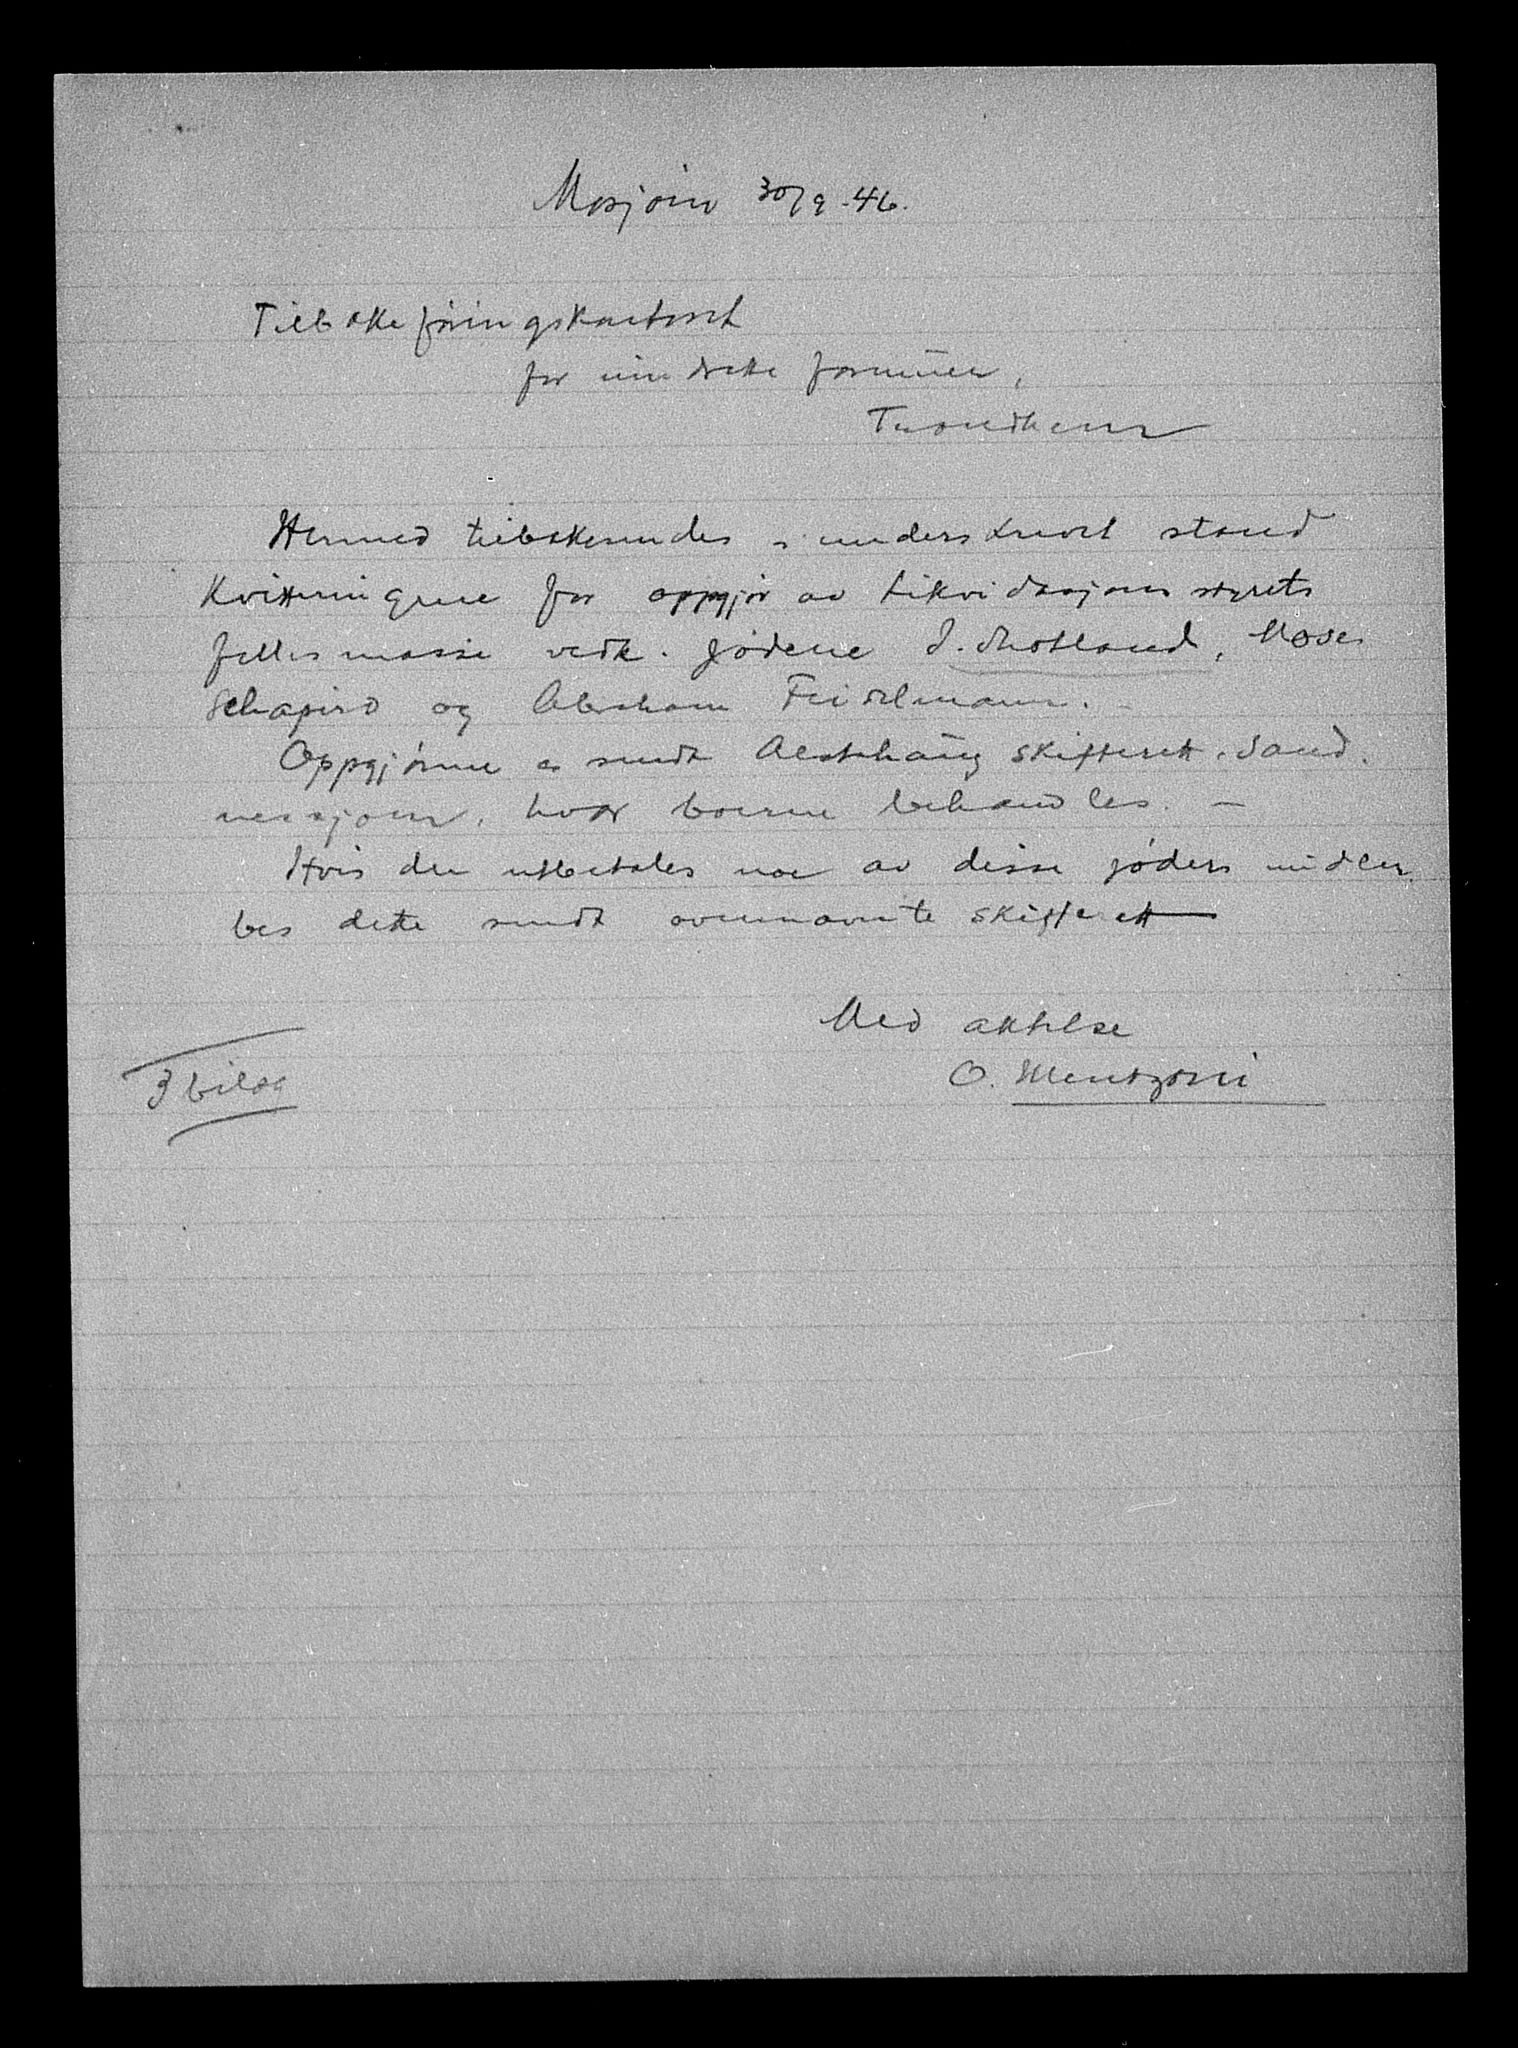 Mosjøen 30/9-46.
Tilbakeføringskontoret
for inndratte formuer,
Trondheim
Hermed tilbakesendes i underskrevet stand
kvitteringene for oppgjør av Likvidasjonsstyrets
fellesmasse vedk. jødene I. Shotland, Moses
Schapiro og Abraham Fischelmann.
Oppgjørene er sendt Alstahaug skifterett. Sand-
nessjøen, hvor boerne behandles. -
Hvis der utbetales noe av disse jøders midler
bes dette sendt overnavnte skifterett
Med aktelse
O. Mentzoni
3 bilag